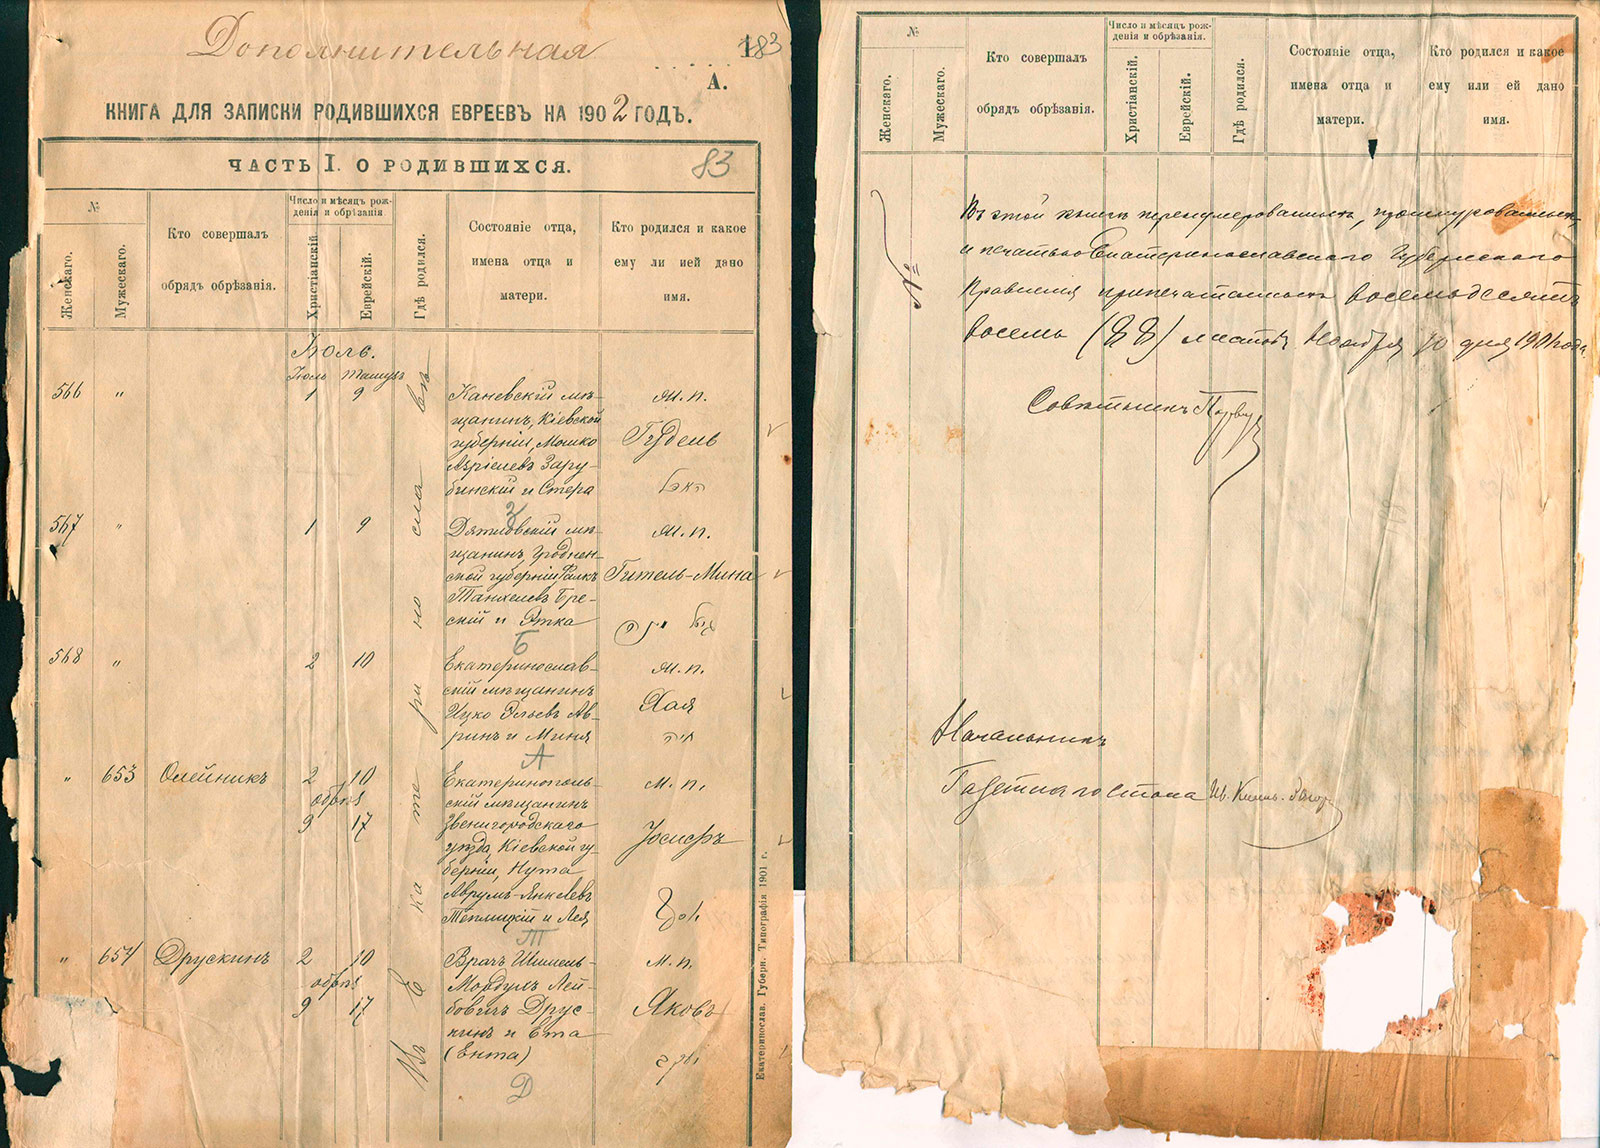 Дополнительная
183
А.
КНИГА ДЛЯ ЗАПИСКИ РОДИВШИХСЯ ЕВРЕЕВЪ НА 1902 ГОДЪ.
ЧАСТЬ I. О РОДИВШИХСЯ.
83
№
Женскаго.
Мужескаго.
Кто совершалъ
обрядъ обрѣзанія.
Число и мѣсяцъ рож-
денія и обрѣзанія
Христіанскій
Еврейскій.
Гдѣ родился.
Состояніе отца,
имена отца и
матери.
Кто родился и какое
ему ли ией дано
имя.
Іюль.
Іюль Тамузъ
Въ Екатеринославѣ
566 " 1 9
Каневскій мѣ-
щанинъ, Кіевской
губерніи, Мошко
Азріелевъ Зару-
бинскій и Стера
ж.п.
Гудель
З
567 " 1 9
Дятловскій мѣ-
щанинъ, Гроднен-
ской губерніи Фалкъ
Танхелевъ Бре-
скій и Этка
ж.п.
Гитель-Мина
Б
568 " 2 10
Екатеринослав-
скій мѣщанинъ
Ицко Эльевъ Ав-
ринъ и Миня
ж.п.
Хая
חיה
А
" 653 Олейникъ 2 10
обрѣз
9 17
Екатеринополь-
скій мѣщанинъ
Звенигородскаго
уѣзда, Кіевской гу-
берніи, Нута
Аврумъ-Янкелевъ
Теплицкій и Лея
м.п.
Іосифъ
Т
" 654 Друскинъ 2 10
обрѣз
9 17
Врачъ Шмуель-
Мордухъ Лей-
бовичъ Друс-
кинъ и Ета
(Ента)
м.п.
Яковъ
Д
Екатеринослав. Губерн. Типографія 1901 г.
№
Женскаго.
Мужескаго.
Кто совершалъ
обрядъ обрѣзанія.
Число и мѣсяцъ рож-
денія и обрѣзанія.
Христіанскій.
Еврейскій.
Гдѣ родился.
Состояніе отца,
имена отца и
матери.
Кто родился и какое
ему или ей дано
имя.
№
Въ этой книгѣ перенумерованныхъ, прошнурованныхъ
и печатью Екатеринославскаго Губернскаго
Правленія припечатанныхъ восемьдесятъ
восемь (88) листовъ Ноября 10 дня 1901 года.
Совѣтникъ
Начальникъ
Газетнаго стола